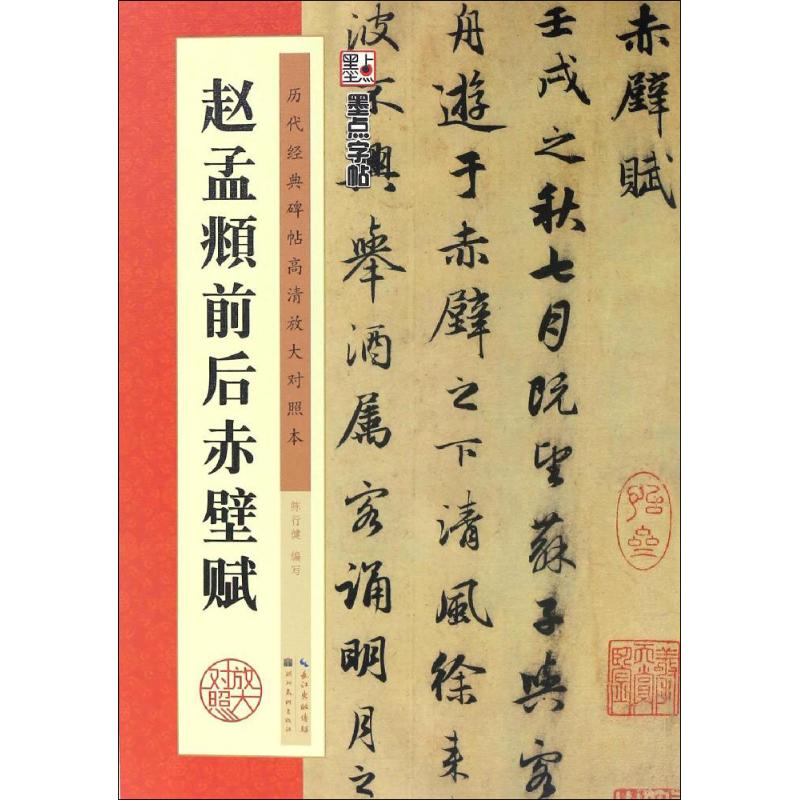 赤壁賦
壬戌之秋七月既望蘇子與客
舟遊于赤壁之下清風徐来
波不興舉酒属客誦明月之
墨点
墨点字帖
历代经典碑帖高清放大对照本
陈行健 编写
长江出版传媒
湖北美术出版社
赵孟頫前后赤壁赋
放大对照